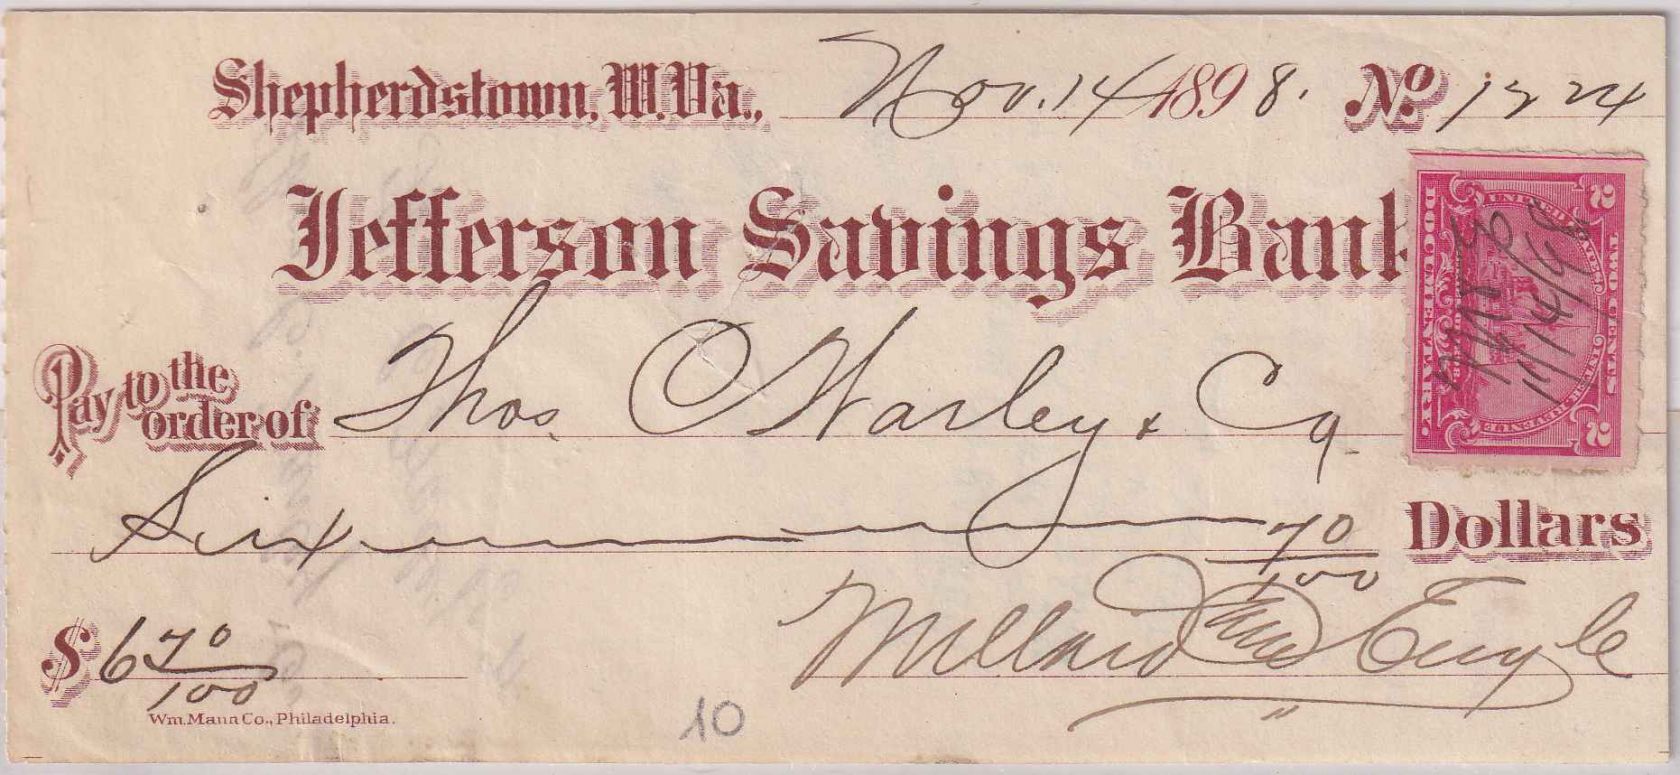 Shepherdstown, W. Va., Nov. 14 1898. No. 1224
Jefferson Savings Bank
Pay to the order of Thos. O Harley & Co
Six 70/100 Dollars
$ 6 70/100
Wm. Mann Co., Philadelphia.
10
UNITED STATES
INTER. REVENUE
DOCUMENTARY.
TWO CENTS
2
2
11/14/98